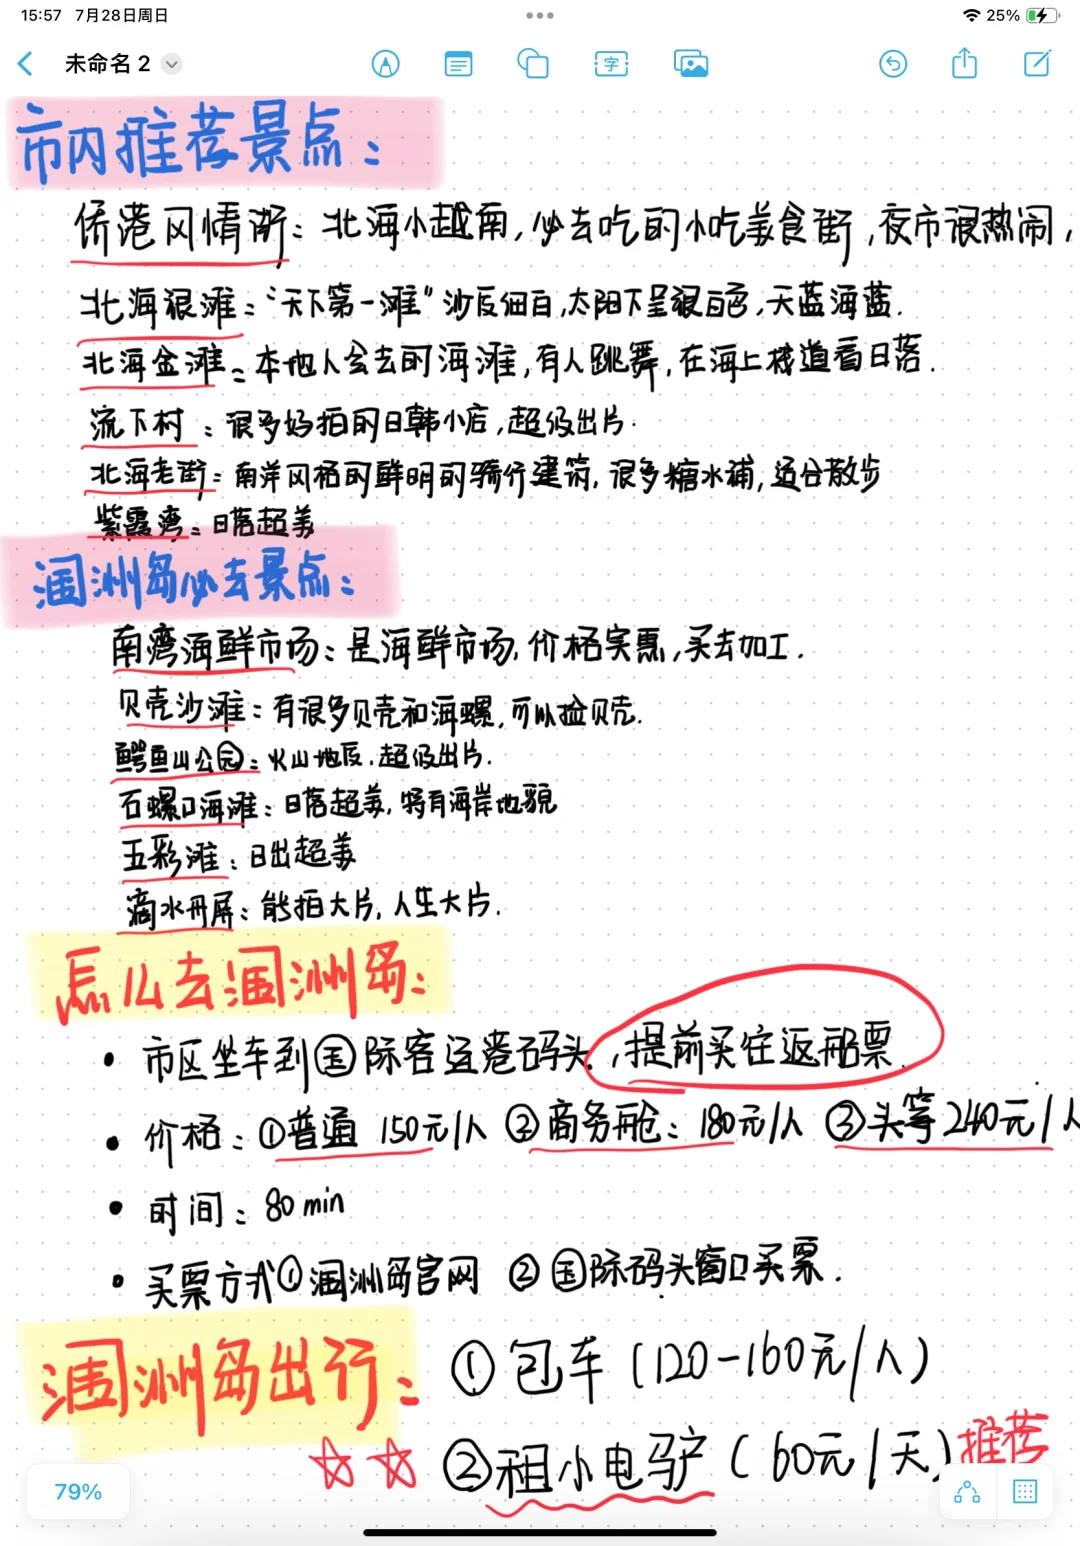 15:57 7月28日周日
25%
未命名 2
字
市内推荐景点：
侨港风情街：北海小越南，必去吃的小吃美食街，夜市很热闹，
北海银滩：“天下第一滩”沙质细白，太阳下呈银白色，天蓝海蓝.
北海金滩：本地人会去的海滩，有人跳舞，在海上栈道看日落.
流下村：很多好拍的日韩小店，超级出片.
北海老街：南洋风格的鲜明的骑行建筑，很多糖水铺，适合散步
紫霞湾：日落超美
涠洲岛必去景点：
南湾海鲜市场：是海鲜市场，价格实惠，买去加工.
贝壳沙滩：有很多贝壳和海螺，可以捡贝壳.
鳄鱼山公园：火山地质，超级出片.
石螺口海滩：日落超美，特有海岸地貌
五彩滩：日出超美
滴水丹屏：能拍大片，人生大片.
怎么去涠洲岛：
• 市区坐车到国际客运港码头，提前买往返船票.
• 价格：①普通 150元/人 ②商务舱：180元/人 ③头等240元/人
• 时间：80min
• 买票方式①涠洲岛官网 ②国际码头窗口买票.
涠洲岛出行： ①包车（120-160元/人）
②租小电驴（60元/天）推荐
79%